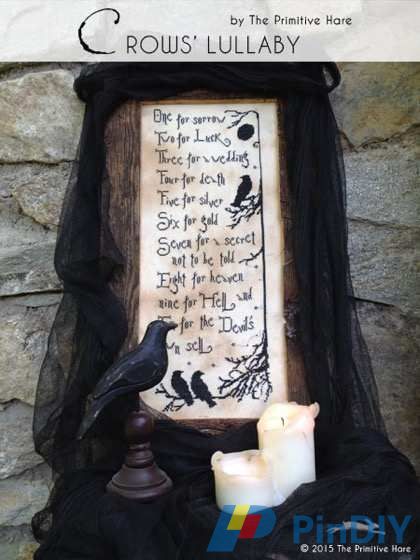 by The Primitive Hare
CROWS' LULLABY
One for sorrow
Two for Luck
Three for a wedding
Four for death
Five for silver
Six for gold
Seven for a secret
not to be told
Eight for heaven
nine for Hell and
for the Devil's
sell
PinDIY
© 2015 The Primitive Hare